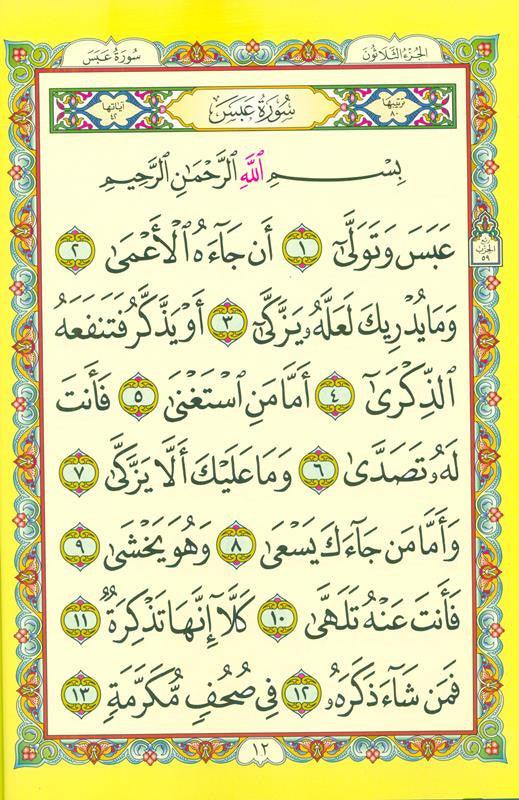 سُورَةُ عَبَسَ
الجُزءُ الثَّلَاثُونَ
آيَاتُهَا ٤٢
سُورَةُ عَبَسَ
تَرتِيبُهَا ٨٠
بِسْمِ ٱللَّهِ ٱلرَّحْمَٰنِ ٱلرَّحِيمِ
عَبَسَ وَتَوَلَّىٰٓ ١ أَن جَآءَهُ ٱلْأَعْمَىٰ ٢
رُبع الحِزب ٥٩
وَمَا يُدْرِيكَ لَعَلَّهُۥ يَزَّكَّىٰٓ ٣ أَوْ يَذَّكَّرُ فَتَنفَعَهُ
ٱلذِّكْرَىٰٓ ٤ أَمَّا مَنِ ٱسْتَغْنَىٰ ٥ فَأَنتَ
لَهُۥ تَصَدَّىٰ ٦ وَمَا عَلَيْكَ أَلَّا يَزَّكَّىٰ ٧
وَأَمَّا مَن جَآءَكَ يَسْعَىٰ ٨ وَهُوَ يَخْشَىٰ ٩
فَأَنتَ عَنْهُ تَلَهَّىٰ ١٠ كَلَّآ إِنَّهَا تَذْكِرَةٌ ١١
فَمَن شَآءَ ذَكَرَهُۥ ١٢ فِى صُحُفٍ مُّكَرَّمَةٍ ١٣
١٢